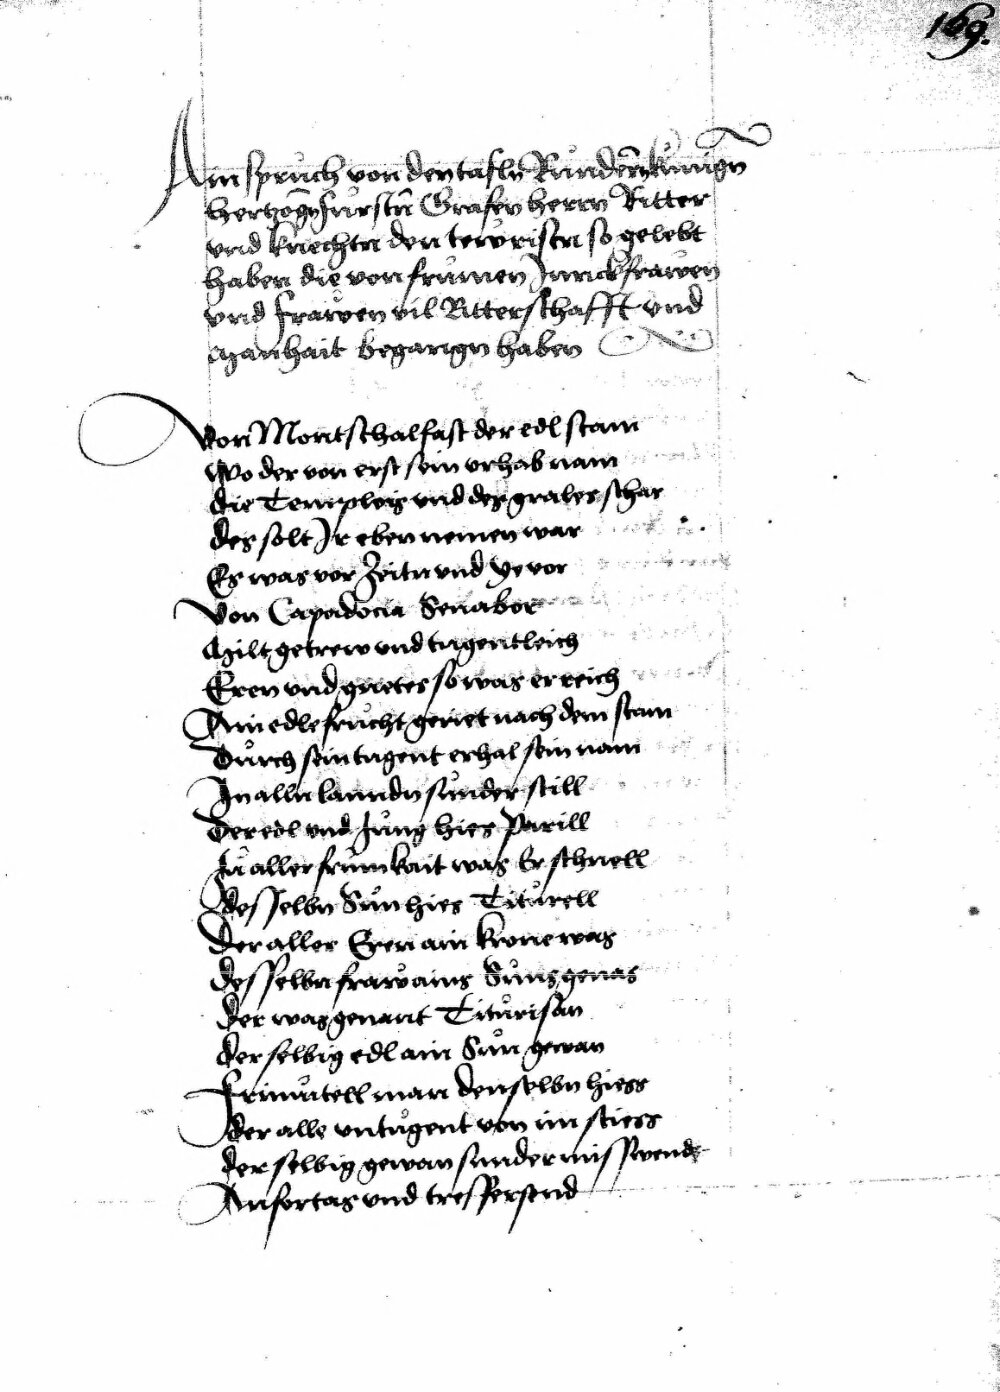 169.
Ain spruch von den tafln Rundern kunign
hertzogn furstn Grafen herrn Ritter
vnd knechtn den tewristn so gelebt
haben die von frumen Junckfrawen
vnd frawen vil Ritterschafft vnd
Manhait begangn haben
Von Montschalfast der edl stam
Wo der von erst sein vrhab nam
die Temploys vnd des grales schar
des solt Jr eben nemen war
Es was vor Zeitn vnd ye vor
Von Capadocia Senabor
Milt getrew vnd tugentleich
Eren vnd guetes so was er reich
Ain edle frucht geriet nach dem stam
Durch sein tugent erhal sein nam
In alln lanndn sunder still
Der edl vnd Jung hies Parill
In aller frumkait was Er schnell
desselbn Sun hies Titurell
Der aller Eren ain krone was
desselbn fraw ains Suns genas
der was genant Titurisan
der selbig edl ain Sun gewan
Frimutell man denselbn hiess
der alle vntugent von im stiess
der selbig gewan sunder misswend
Anfortas vnd treffersend